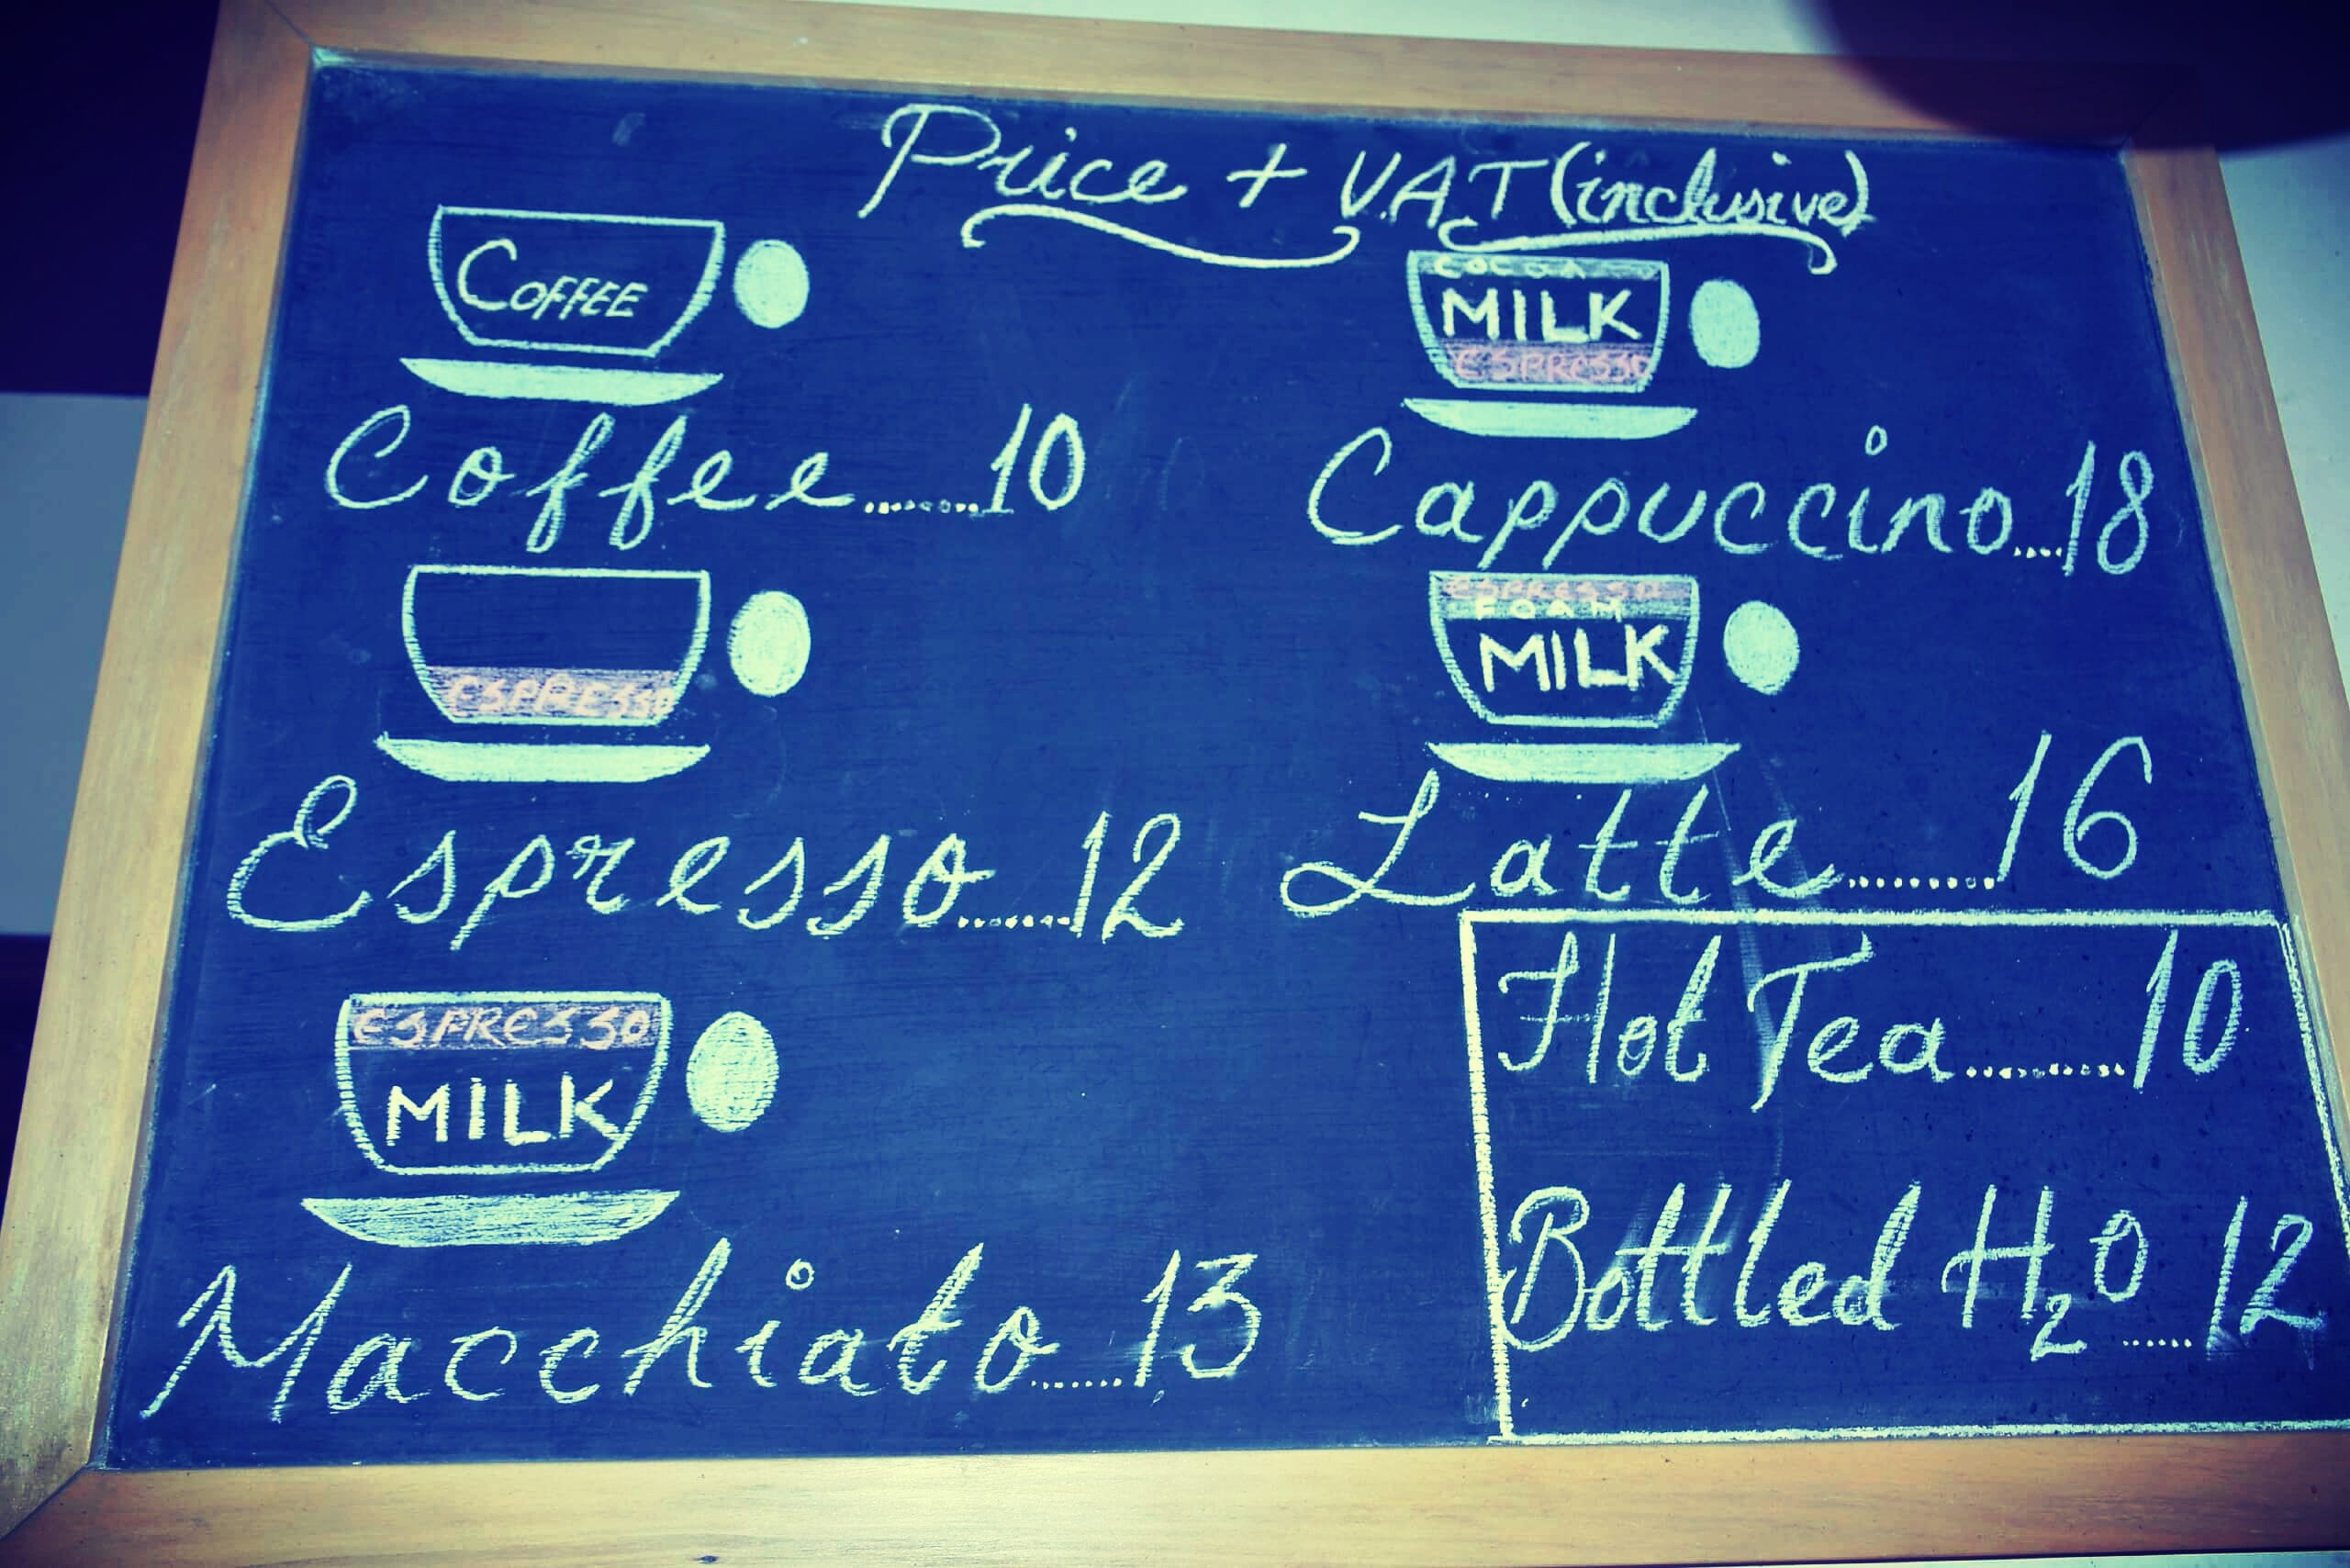 Price + V.A.T (inclusive)
COFFEE
Coffee..........10
ESPRESSO
Espresso..........12
ESPRESSO
MILK
Macchiato.......13
COCOA
MILK
ESPRESSO
Cappuccino....18
ESPRESSO
FOAM
MILK
Latte.........16
Hot Tea..........10
Bottled H₂O......12